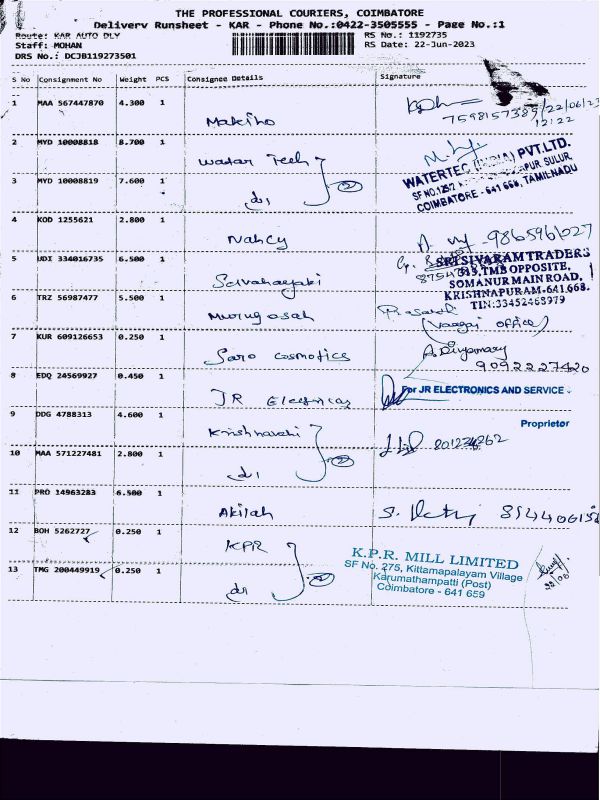 THE PROFESSIONAL COURIERS, COIMBATORE
Delivery Runsheet - KAR - Phone No.:0422-3505555 - Page No.:1
Route: KAR AUTO DLY RS No.: 1192735
Staff: MOHAN RS Date: 22-Jun-2023
DRS No.: DCJB119273501
S No Consignment No Weight PCS Consignee Details Signature
1 MAA 567447870 4.300 1 Makino
7598157389/22/06/23
12:22
2 MYD 10008818 8.700 1 Watar Tech
WATERTEC (INDIA) PVT.LTD.
SULUR,
COIMBATORE - 641 668, TAMILNADU
3 MYD 10008819 7.600 1 do
4 KOD 1255621 2.800 1 Nancy
5 UDI 334016735 6.500 1
SRI SIVARAM TRADERS
313, TMB OPPOSITE,
SOMANUR MAIN ROAD,
KRISHNAPURAM-641.668.
TIN:33452468979
6 TRZ 56987477 5.500 1 Murugasah
(Vaagai office)
7 KUR 609126653 0.250 1 Saro cosmotics
9092227420
8 EDQ 24569927 0.450 1 JR Electrical
For JR ELECTRONICS AND SERVICE
Proprietor
9 DDG 4788313 4.600 1
10 MAA 571227481 2.800 1 do
11 PRO 14963283 6.500 1 Akilah
12 BOH 5262727 0.250 1 KPR
K.P.R. MILL LIMITED
SF No. 275, Kittampalayam Village
Karumathampatti (Post)
Coimbatore - 641 659
13 TMG 200449919 0.250 1 do